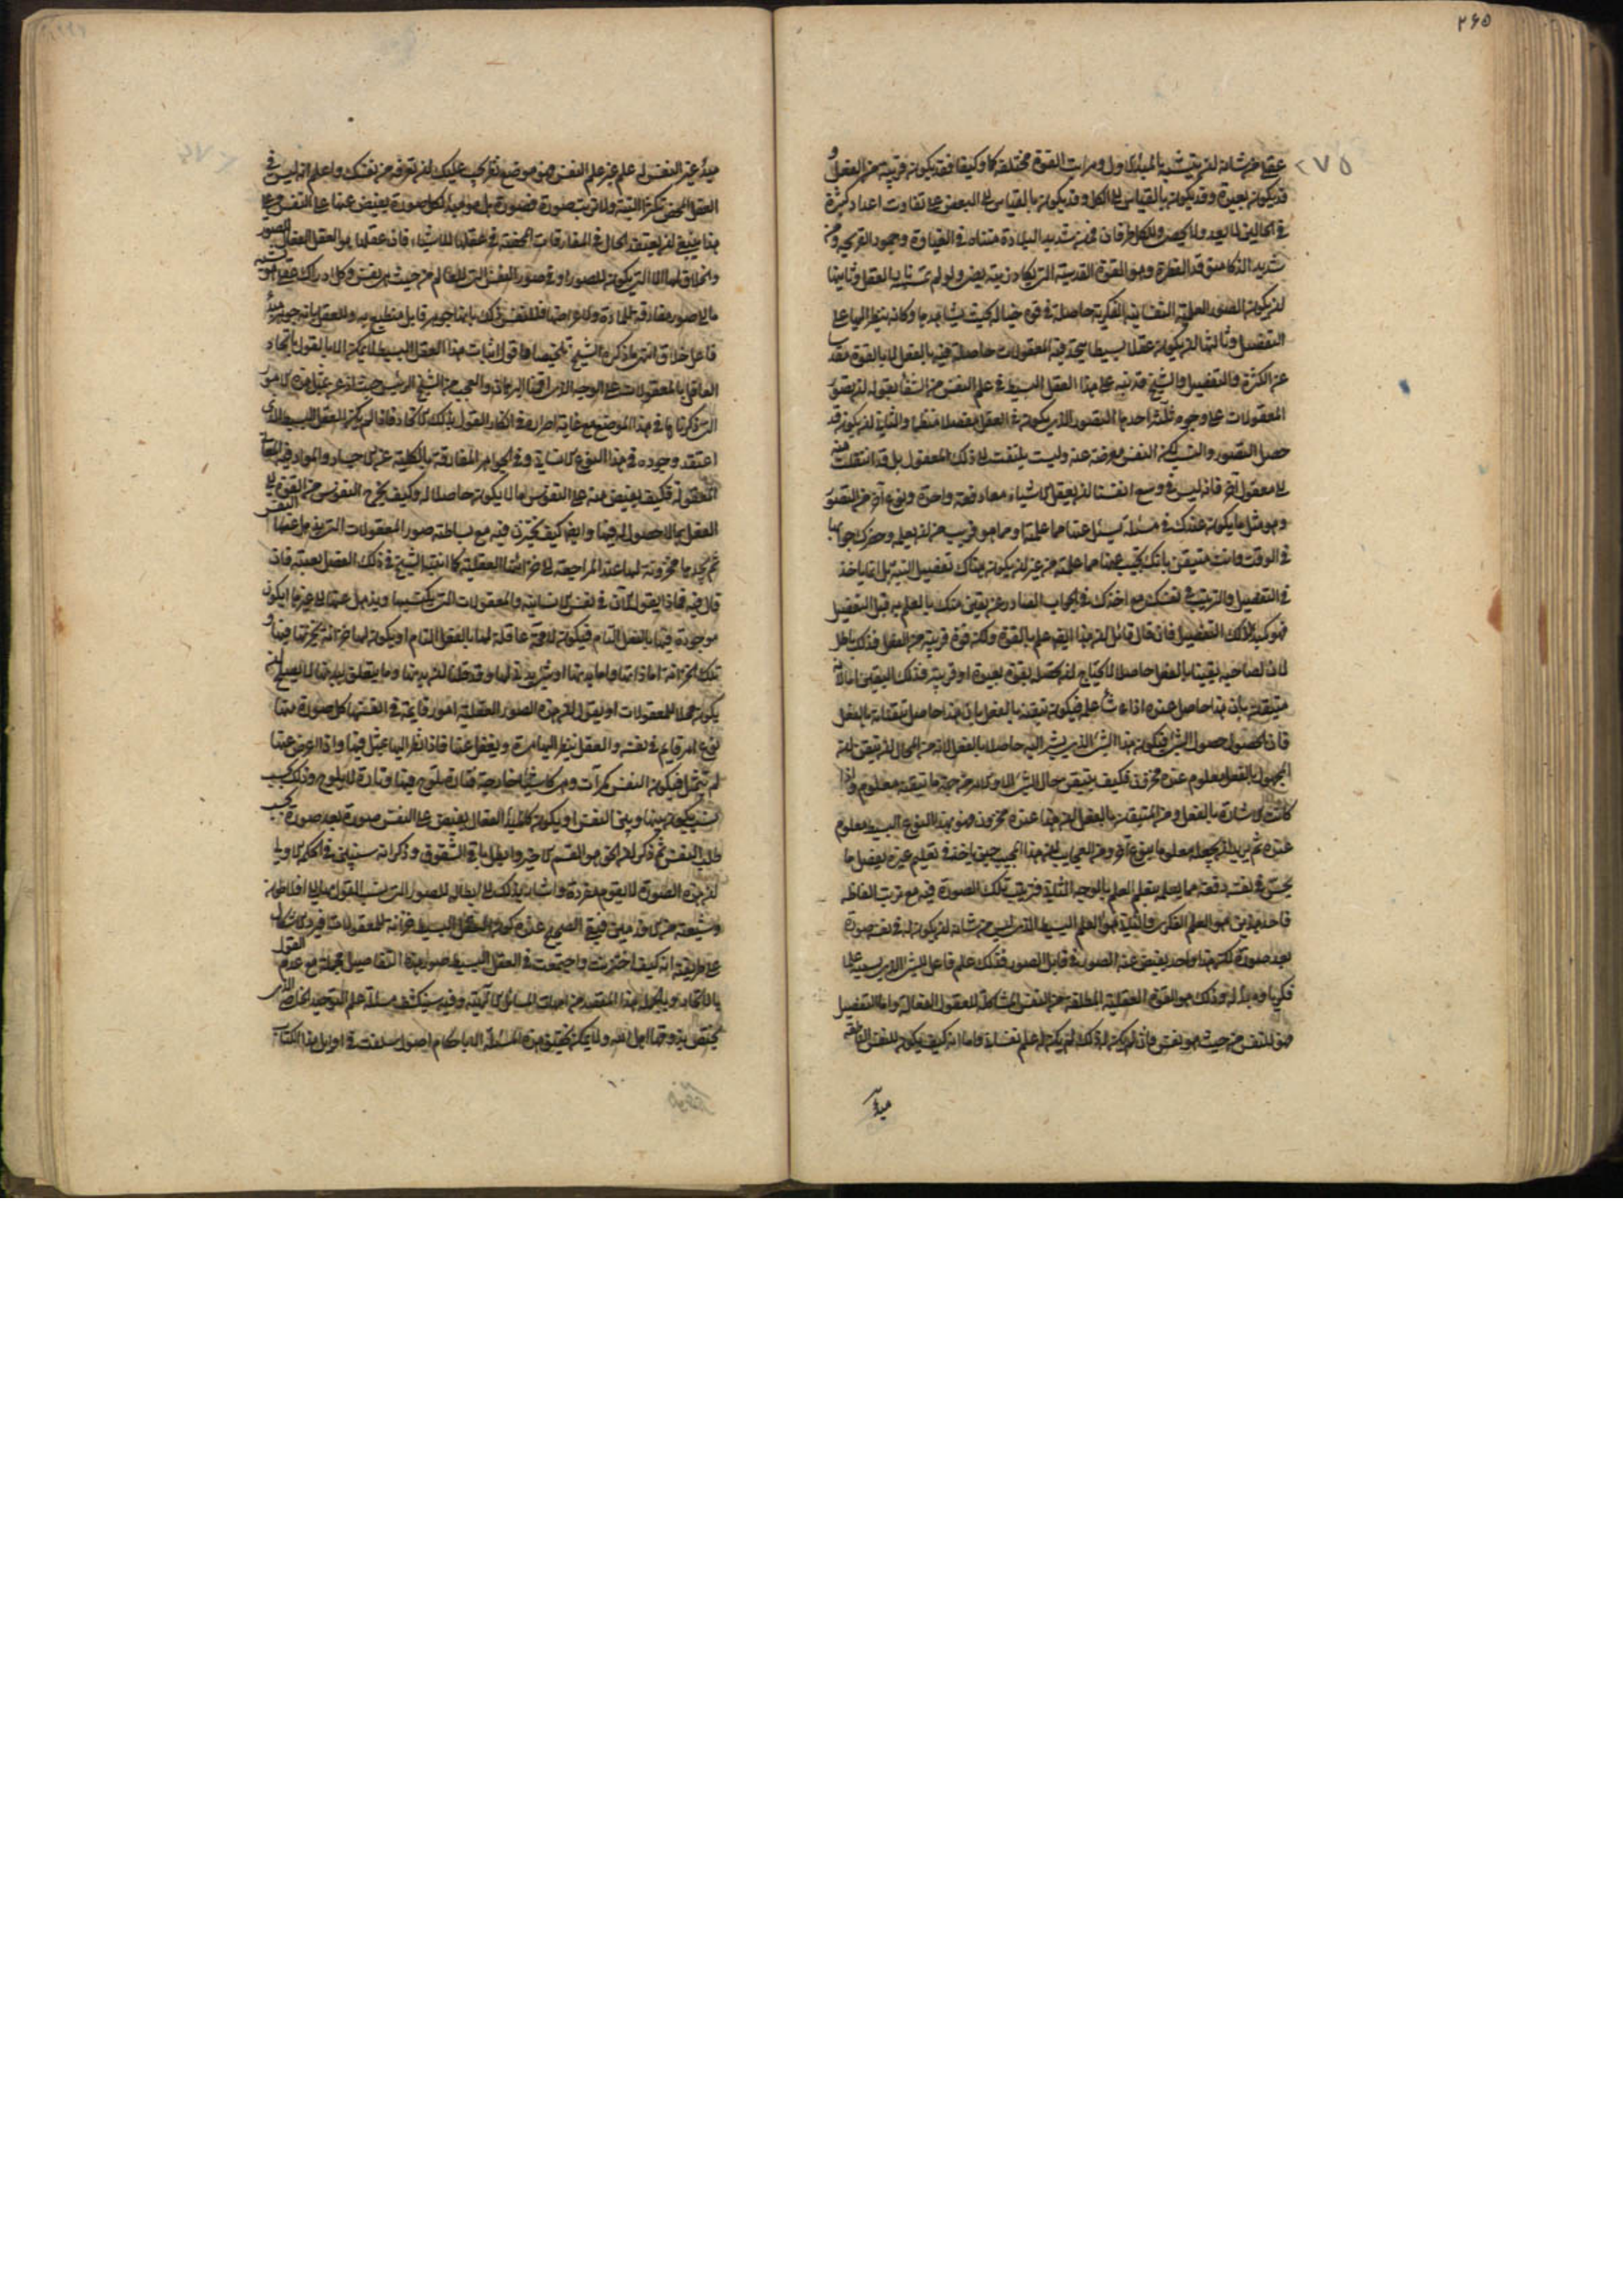 ٢٦٥
٢٧٥
عقلا من شانه ان يتشبه بالمبدأ الاول و مراتب القوة مختلفة كما وكيفا فقد يكون قريبة من الفعل و
قد يكون بعيدة وقد يكون بالقياس الى الكل وقد يكون بالقياس الى البعض على تفاوت اعداد كثيرة
شديد الذكاء متوقد الفطرة وهو القوة القدسية التي يكاد زيته يضئ ولو لم تمسه نار العقل وثانيها
ان يكون الصور العلمية النفسانية الفكرية حاصلة في قوة خياله بحيث يشاهدها وكانه ينظر اليها على
التفصيل وثالثها ان يكون عقلا بسيطا يتحد فيه المعقولات حاصلة فيه بالفعل لا بالقوة مقدسا
عن الكثرة والتفصيل والشيخ قد نبه على هذا العقل البسيط في علم النفس من الشفا بقوله ان تصور
المعقولات على وجوه ثلثة احدها التصور الذي يكون في العقل مفصلا منظما والثاني ان يكون قد
حصل التصور واكتسب لكن النفس معرضة عنه وليست يلتفت الى ذلك المعقول بل قد انتقلت منه
الى معقول اخر فانه ليس في وسع انفسنا ان يعقل الاشياء معا دفعة واحدة ونوع آخر من التصور
وهو مثل ما يكون عندك في مسئلة يسئل عنها مما علمتها او مما هو قريب من ان يعلمه وحضرك جوابها
في الوقت وانت متيقن بانك تجيب عنها مما علمته من غير ان يكون هناك تفصيل البتة بل انما ياخذ
في التفصيل والترتيب في نفسك مع اخذك في الجواب الصادر عن يقين منك بالعلم به قبل التفصيل
فهو كمبدأ لذلك التفصيل فان قال قائل ان هذا ايضه علم بالقوة ولكن قوة قريبة من الفعل فذلك باطل
لان لصاحبه يقينا بالفعل حاصلا لا يحتاج ان يحصل بقوة بعيدة او قريبة فذلك اليقين اما لانه
متيقن بان هذا حاصل عنده اذا شاء علمه فيكون تيقنه بالفعل بان هذا حاصل تيقنا به بالفعل
فان الحصول حصول لشئ فيكون هذا الشئ الذي يشير اليه حاصلا بالفعل لانه من المحال ان يتيقن ان
المجهول بالفعل معلوم عنده مخزون فكيف يتيقن حال الشئ الا و الامر من جهة ما تيقنه معلوم واذا
كانت الاشارة بالفعل ومن المتيقن بالفعل ان هذا عنده مخزون فهو بهذا النوع البسيط معلوم
عنده ثم يريد ان يجعله معلوما بنوع آخر ومن العجايب ان هذا المجيب حين ياخذ في تعليم غيره تفصيل ما
يحس في نفسه دفعة مما يعلمه يتعلم العلم بالوجه الثاني فترتيب تلك الصورة فيه مع ترتب الفاظه
فاحد هذين هو العلم الفكري والثاني هو العلم البسيط الذي ليس من شانه ان يكون له في نفسه صورة
بعد صورة لكن هذا واحد يفيض عنه الصور في قابل الصور فذلك علم فاعل للشئ الذي يسميه علما
فكريا ومبدأ له وذلك هو القوة العقلية المطلقة من النفس المشاكلة للعقول الفعالة واما التفصيل
فهو للنفس من حيث هو نفس فان لم يكن له ذلك لم يكن له علم نفساني واما انه كيف يكون للنفس الناطقة
مبدأ
مبدأ غير النفس له علم غير علم النفس فهو موضع نظر يجب عليك ان تعرفه من نفسك واعلم انه ليس في
العقل المحض تكثر البتة ولا ترتيب صورة فصورة بل هو مبدأ لكل صورة يفيض عنها على النفس وعلى
هذا ينبغي ان يعتقد الحال في المفارقات المحضة في عقلها للاشياء فان عقلها هو العقل الفعال للصور
والخلاق لها لا الذي يكون للصور او في صور النفس التي للعالم من حيث هي نفس وكل ادراك عقلي فهو نسبة
ما الى صورة مفارقة للمادة ولاعراضها فللنفس ذلك بانها جوهر قابل منطبع به وللعقل بانه جوهر مبدأ
فاعل خلاق انتهى ما ذكره الشيخ تلخيصا واقول اثبات هذا العقل البسيط لا يمكن الا بالقول باتحاد
العاقل بالمعقولات على الوجه الذي اقمنا البرهان والعجب من الشيخ الرئيس حيث اذعن بمثل هذه الامور
التي ذكرناها في هذا الموضع مع غاية اصراره في انكار القول بذلك الاتحاد فاذا لم يكن العقل البسيط الذي
اعتقد وجوده في هذا النوع الانساني وفي الجواهر المفارقة بالكلية عن الاجساد والمواد فيه المعاني
المعقولة فكيف يفيض منه على النفوس ما لا يكون حاصلا له وكيف يخرج النفوس من القوة الى
العقل بما لا حصول له فيها وايضا كيف يختزن فيه مع بساطته صور المعقولات التي يذهل عنها النفس
ثم يجدها مخزونة لها عند المراجعة الى خزانتها العقلية كما اثبته الشيخ في ذلك الفصل بعينه فانه
قال فيه فماذا يقول الآن في نفس الانسانية والمعقولات التي يكتسبها ويذهل عنها الى غيرها ايكون
موجودة فيها بالفعل التام فيكون لا محة عاقلة لها بالفعل التام او يكون لها خزانة يخزنها فيها و
تلك الخزانة اما ذاتها واما بدنها او شئ بدني لها وقد قلنا ان بدنها وما يتعلق ببدنها لا يصلح ان
يكون محلا للمعقولات او يقول ان هذه الصور العقلية امور قايمة في انفسها كل صورة منها
نوع امر قايم في نفسه والعقل ينظر اليها مرة ويغفل عنها فاذا نظر اليها تمثل فيها واذا اعرض عنها
لم يتمثل فيكون النفس كمرآت وهي كاشياء خارجية فتارة يلوح فيها وتارة لا يلوح وذلك بحسب
نسب يكون بينها وبين النفس او يكون كالمبدأ الفعال يفيض على النفس صورة بعد صورة بحسب
طلب النفس ثم ذكر ان الحق هو القسم الاخير وابطل باقي الشقوق وذكر انه سنبين في الحكمة الاولى
ان هذه الصورة لا يقوم مفردة واشار بذلك الى ابطال للصور التي ينسب القول بها الى افلاطون
وشيعته من الاقدمين فبقي الصحيح عنده كون العقل البسيط خزانة للمعقولات فيرد الاشكال
على طريقته انه كيف اختزنت واجتمعت في العقل البسيط صور هذه التفاصيل جملة مع عدم القول
بالاتحاد وبالجملة هذا المقصد من اجل المسائل الالهية وفيه سينكشف مسئلة علم التوحيد الخاص الذي
يختص به ذوقها اهل الله ولا يمكن تحقيق هذه المسئلة الا باحكام اصول سلفت في اوايل هذا الكتاب